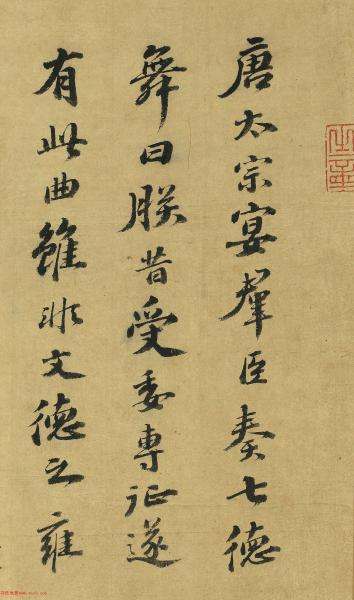 唐太宗宴羣臣奏七德
舞曰朕昔受委專征遂
有此曲雖非文德之雍